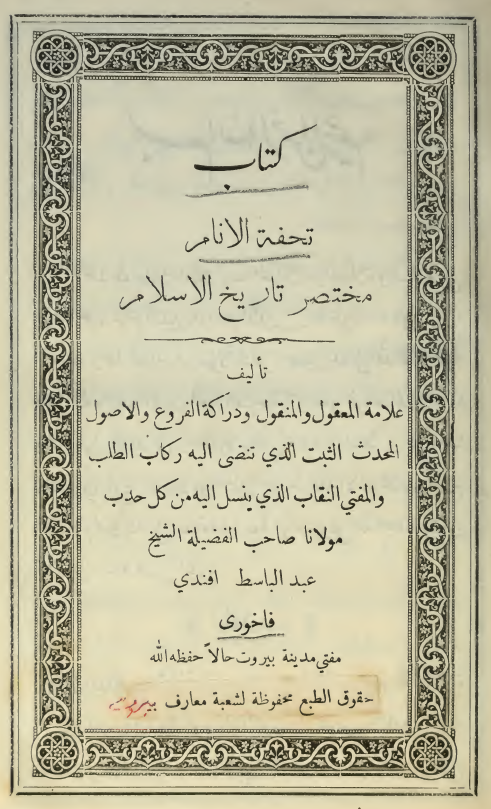 كتاب
تحفة الانام
مختصر تاريخ الاسلام
تأليف
علامة المعقول والمنقول ودراكة الفروع والاصول
المحدث الثبت الذي تنضى اليه ركاب الطلب
والمفتي النقاب الذي ينسل اليه من كل حدب
مولانا صاحب الفضيلة الشيخ
عبد الباسط افندي
فاخوري
مفتي مدينة بيروت حالاً حفظه الله
حقوق الطبع محفوظة لشعبة معارف بيروت